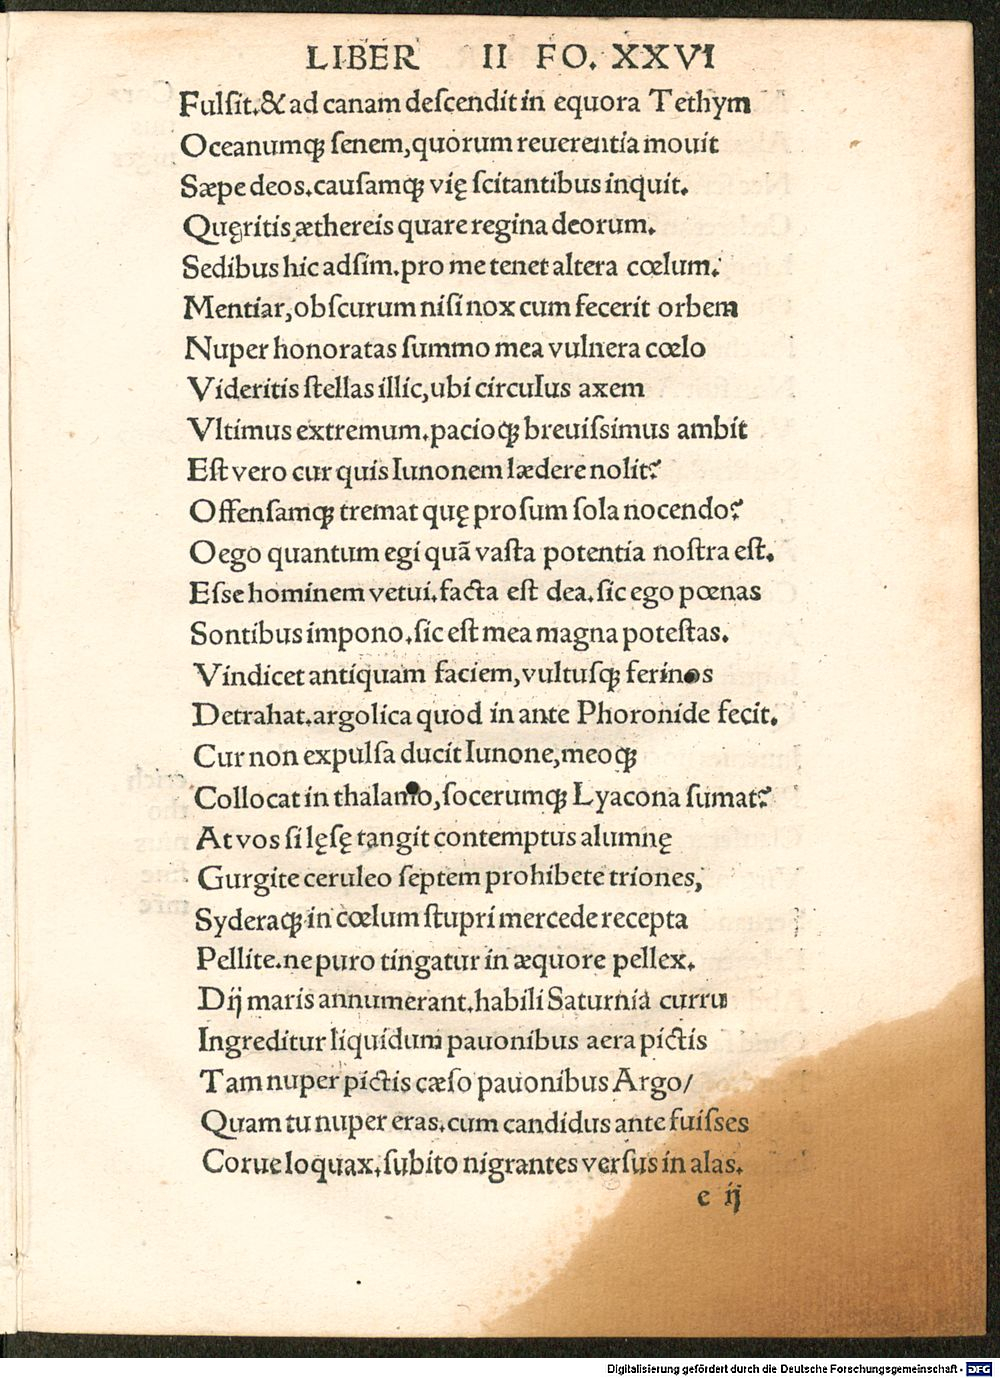 LIBER II FO. XXVI
Fulſit.& ad canam deſcendit in equora Tethym
Oceanumqꝫ ſenem,quorum reuerentia mouit
Sæpe deos.cauſamqꝫ vię ſcitantibus inquit.
Quęritis æthereis quare regina deorum.
Sedibus hic adſim.pro me tenet altera cœlum.
Mentiar,obſcurum niſi nox cum fecerit orbem
Nuper honoratas ſummo mea vulnera cœlo
Videritis ſtellas illic,ubi circulus axem
Vltimus extremum.pacioqꝫ breuiſsimus ambit
Eſt vero cur quis Iunonem lædere nolit?
Offenſamqꝫ tremat quę proſum ſola nocendo?
O ego quantum egi quā vaſta potentia noſtra eſt.
Eſse hominem vetui.facta eſt dea.ſic ego pœnas
Sontibus impono.ſic eſt mea magna poteſtas.
Vindicet antiquam faciem,vultuſqꝫ ferinos
Detrahat.argolica quod in ante Phoronide fecit.
Cur non expulſa ducit Iunone,meoqꝫ
Collocat in thalamo,ſocerumqꝫ Lyacona ſumat?
At vos ſi lęſę tangit contemptus alumnę
Gurgite ceruleo ſeptem prohibete triones,
Syderaqꝫ in cœlum ſtupri mercede recepta
Pellite.ne puro tingatur in æquore pellex.
Dij maris annumerant.habili Saturnia curru
Ingreditur liquidum pauonibus aera pictis
Tam nuper pictis cæſo pauonibus Argo/
Quam tu nuper eras.cum candidus ante fuiſses
Corue loquax.ſubito nigrantes verſus in alas.
e ij
Digitalisierung gefördert durch die Deutsche Forschungsgemeinschaft - DFG